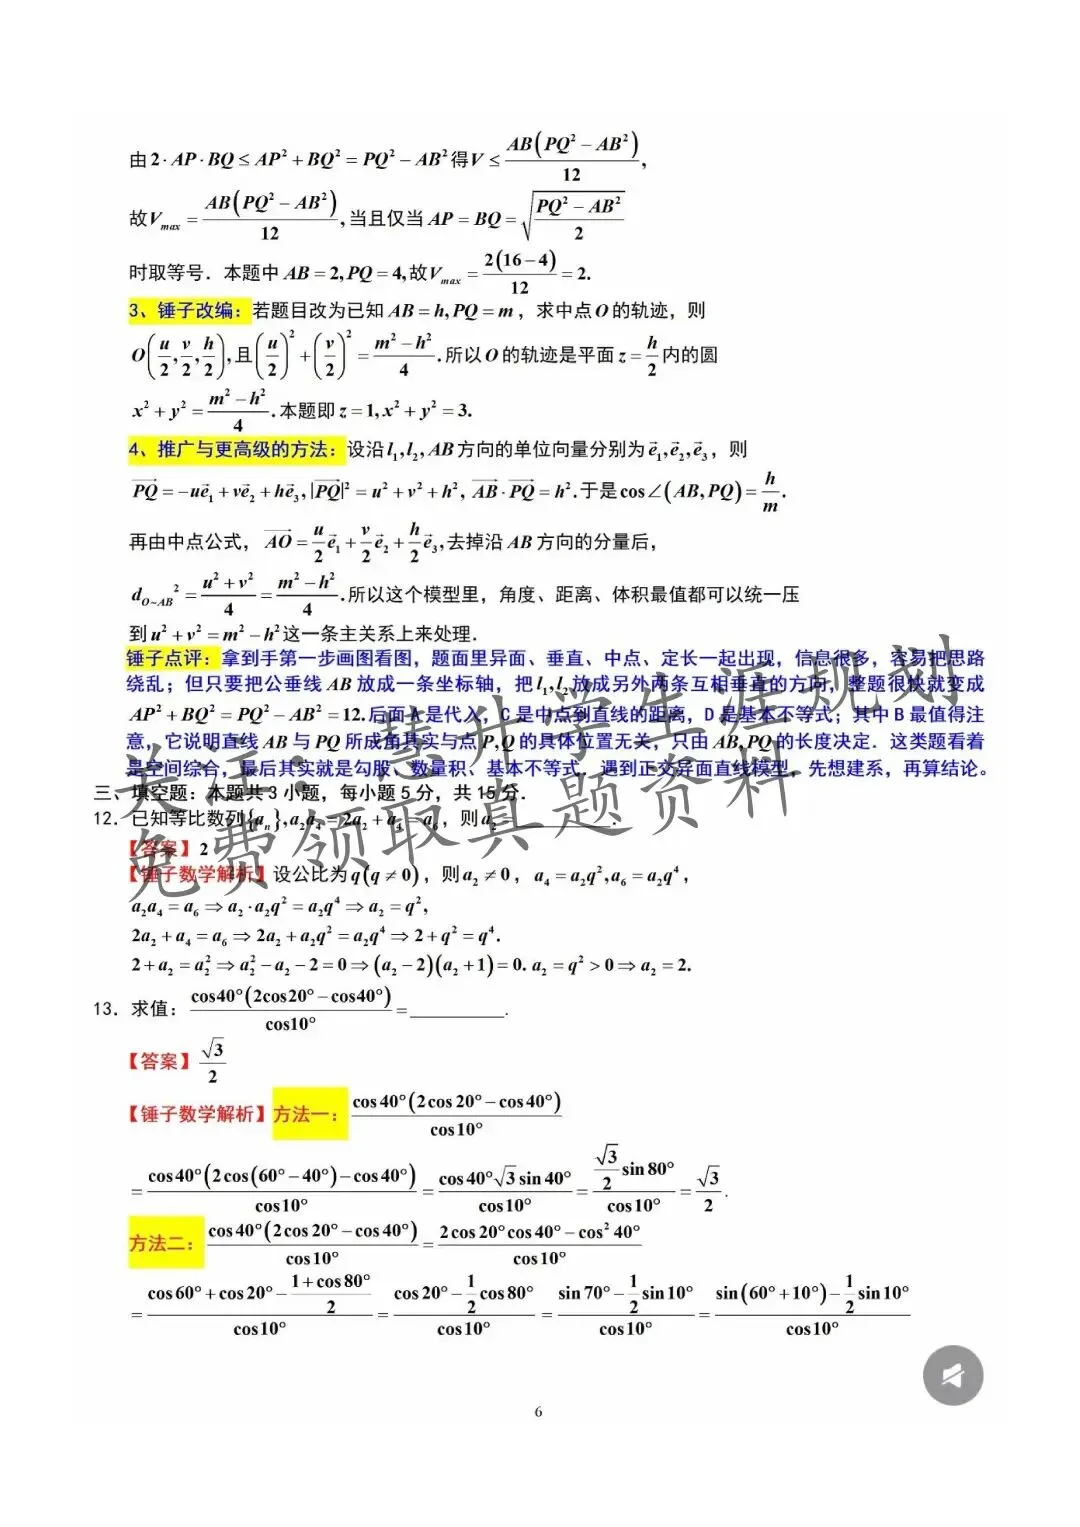 由2·AP·BQ≤AP²+BQ²=PQ²−AB²得V≤AB(PQ²−AB²)/12,
故V_max=AB(PQ²−AB²)/12,当且仅当AP=BQ=√((PQ²−AB²)/2)
时取等号．本题中AB=2,PQ=4,故V_max=2(16−4)/12=2.
3、锤子改编：若题目改为已知AB=h,PQ=m，求中点O的轨迹，则
O(u/2,v/2,h/2),且(u/2)²+(v/2)²=(m²−h²)/4.所以O的轨迹是平面z=h/2内的圆
x²+y²=(m²−h²)/4.本题即z=1,x²+y²=3.
4、推广与更高级的方法：设沿l₁,l₂,AB方向的单位向量分别为e⃗₁,e⃗₂,e⃗₃，则
PQ⃗=−ue⃗₁+ve⃗₂+he⃗₃,|PQ⃗|²=u²+v²+h²,AB⃗·PQ⃗=h².于是cos∠(AB,PQ)=h/m.
再由中点公式，AO⃗=u/2e⃗₁+v/2e⃗₂+h/2e⃗₃,去掉沿AB方向的分量后，
d_{O~AB}²=(u²+v²)/4=(m²−h²)/4.所以这个模型里，角度、距离、体积最值都可以统一压
到u²+v²=m²−h²这一条主关系上来处理．
锤子点评：拿到手第一步画图看图，题面里异面、垂直、中点、定长一起出现，信息很多，容易把思路
绕乱；但只要把公垂线AB放成一条坐标轴，把l₁,l₂放成另外两条互相垂直的方向，整题很快就变成
AP²+BQ²=PQ²−AB²=12.后面A是代入，C是中点到直线的距离，D是基本不等式；其中B最值得注
意，它说明直线AB与PQ所成角其实与点P,Q的具体位置无关，只由AB,PQ的长度决定．这类题看着
是空间综合，最后其实就是勾股、数量积、基本不等式．遇到正交异面直线模型，先想建系，再算结论。
关注：慧升学生涯规划
免费领取真题资料
三、填空题：本题共3小题，每小题5分，共15分．
12．已知等比数列{aₙ},a₂a₄=2a₂+a₄=a₆，则a₂=________.
【答案】2
【锤子数学解析】设公比为q(q≠0)，则a₂≠0，a₄=a₂q²,a₆=a₂q⁴，
a₂a₄=a₆⇒a₂·a₂q²=a₂q⁴⇒a₂=q²,
2a₂+a₄=a₆⇒2a₂+a₂q²=a₂q⁴⇒2+q²=q⁴.
2+a₂=a₂²⇒a₂²−a₂−2=0⇒(a₂−2)(a₂+1)=0.a₂=q²>0⇒a₂=2.
13．求值：cos40°(2cos20°−cos40°)/cos10°=________.
【答案】√3/2
【锤子数学解析】方法一：cos40°(2cos20°−cos40°)/cos10°
=cos40°(2cos(60°−40°)−cos40°)/cos10°=cos40°√3sin40°/cos10°=(√3/2 sin80°)/cos10°=√3/2.
方法二：cos40°(2cos20°−cos40°)/cos10°=(2cos20°cos40°−cos²40°)/cos10°
=(cos60°+cos20°−(1+cos80°)/2)/cos10°=(cos20°−1/2cos80°)/cos10°=(sin70°−1/2sin10°)/cos10°=(sin(60°+10°)−1/2sin10°)/cos10°
6